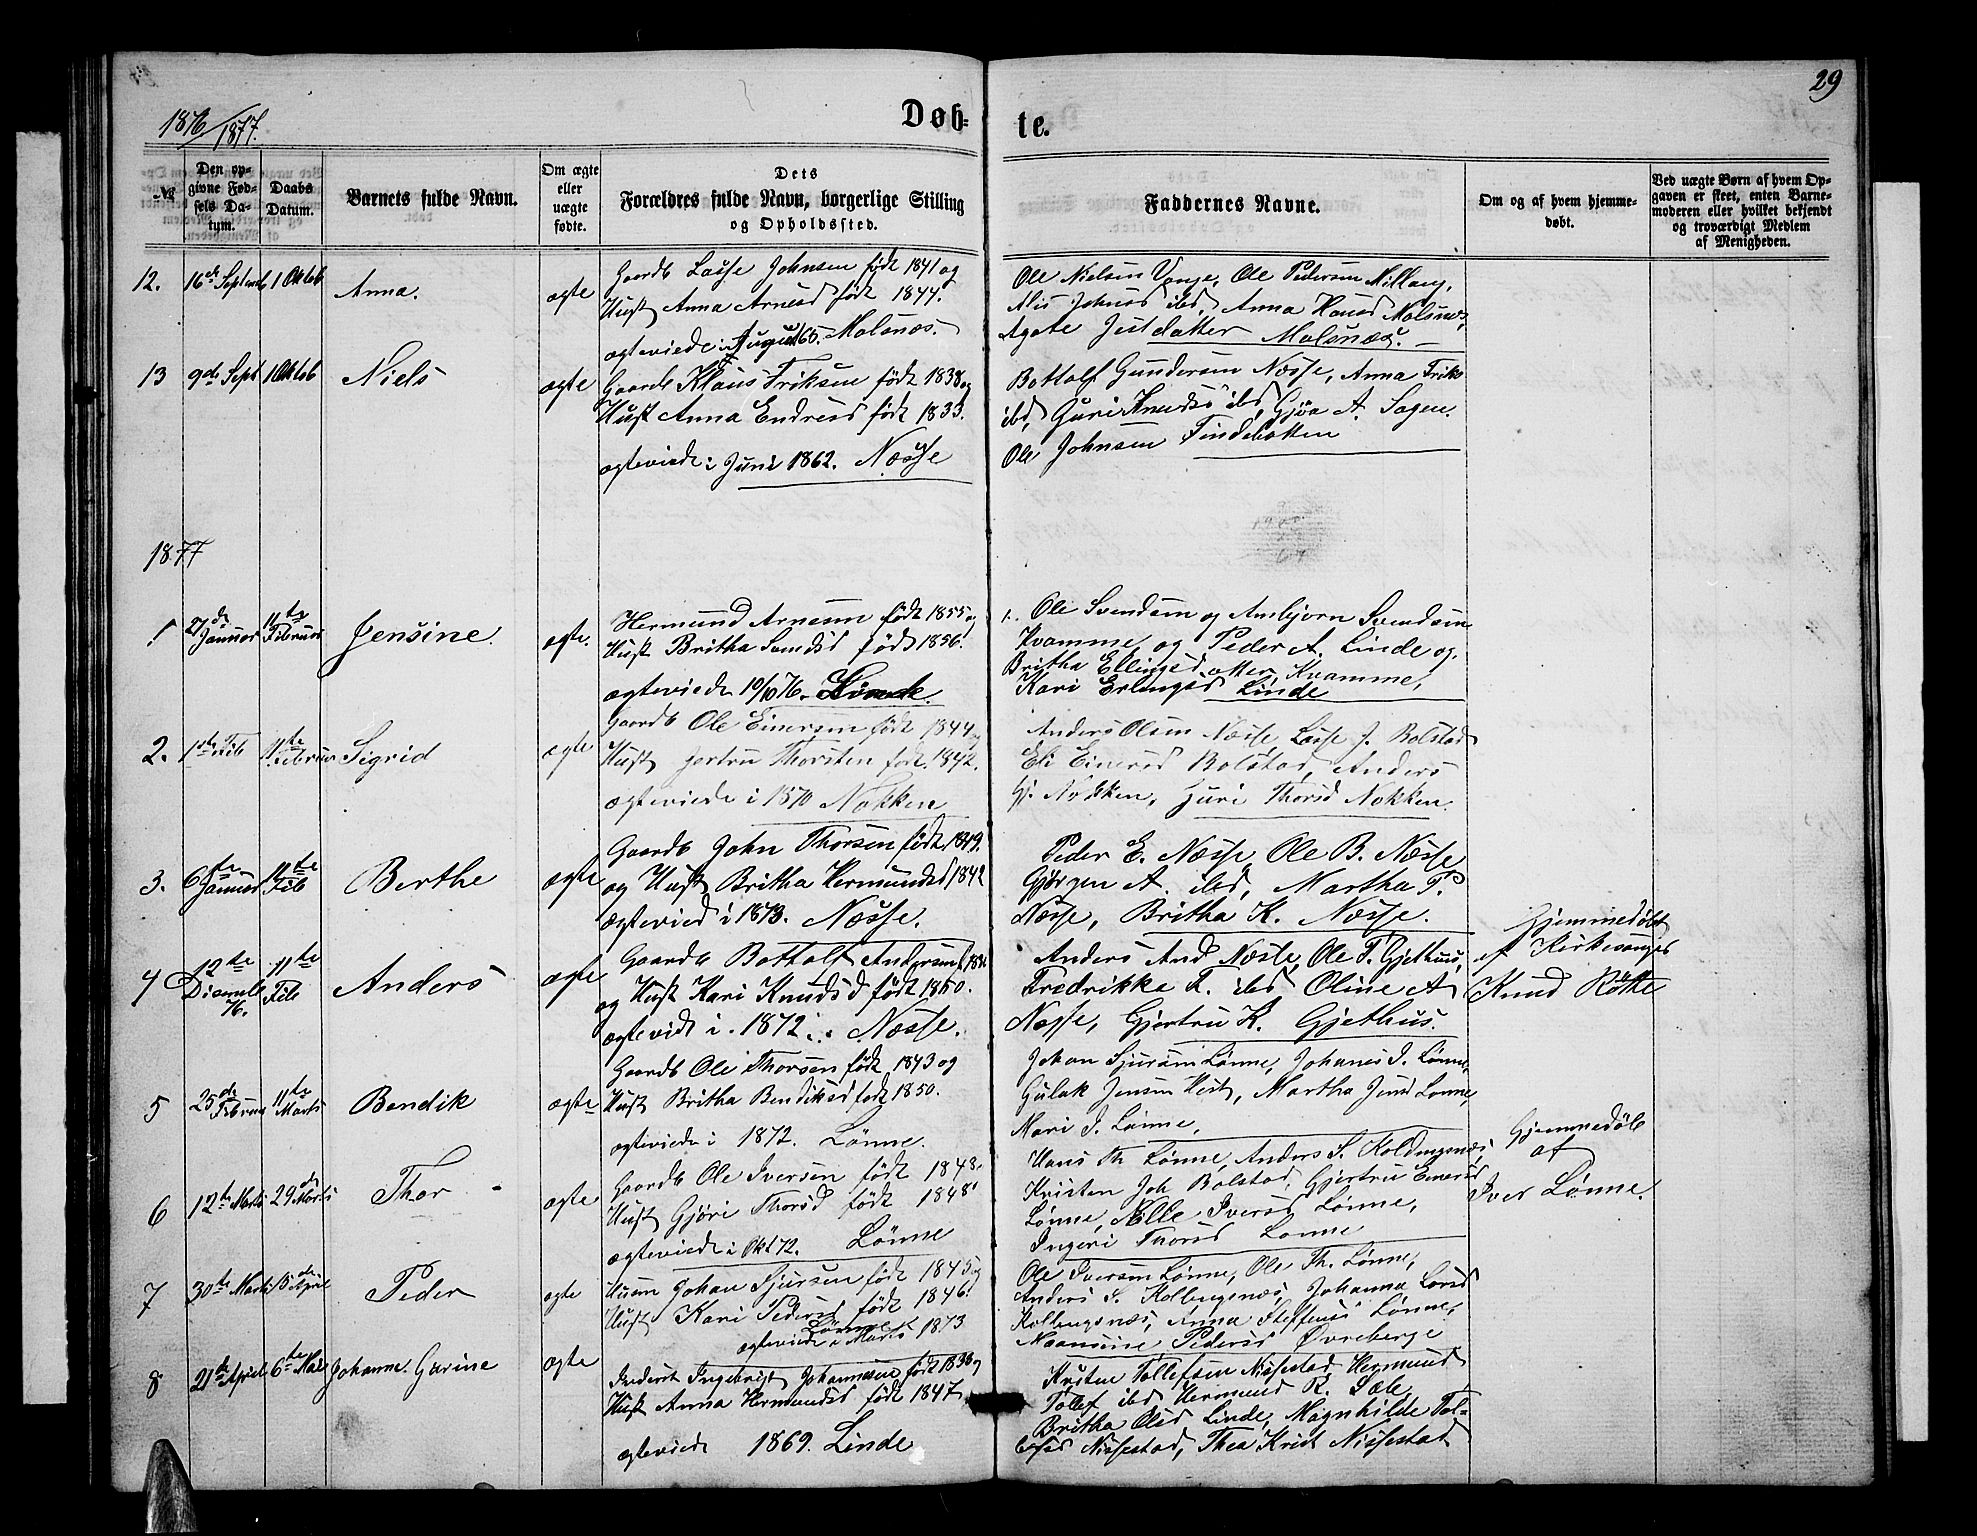 29
1876/1877.
Døb-
te.
№
Den op-
givne Fød-
sels Da-
tum.
Daabs
Datum.
Barnets fulde Navn.
Om ægte
eller
uægte
fødte.
Dets
Forældres fulde Navn, borgerlige Stilling
og Opholdssted.
Faddernes Navne.
Om og af hvem hjemme-
døbt.
Ved uægte Børn af hvem Op-
gaven er skeet, enten Barne-
moderen eller hvilket bekjendt
og troværdigt Medlem
af Menigheden.
12. 16de Septemb 1 Oktob Anna. ægte
Gaardb Lasse Johnsen født 1841 og
Hust Anna Arnesd født 1844.
ægteviede i August 65. Molsnæs.
Ole Nielsen Vange, Ole Pedersen
Johnsd ibd, Anna Hansd Molsnes,
Agate Molsnæs.
13 9de Sept 1 Oktob Niels ægte
Gaardb Klaus Eriksen født 1838 og
Hust Anna Endresd født 1833.
ægteviede i Juni 1862. Næsse
Bottolf Gundersen Næsse, Anna Eriks
ibd, Guri Knudsd ibd, Gjøa A. Sagen.
Ole Johnsen Findebotten
1877
1 27de Januar 11te Februar Jensine. ægte.
Hermund Arnesen født 1855 og
Hust Britha Svendsd født 1856.
ægteviede 10/10 76. Linde.
1. Ole Svendsen og Ansbjørn Svendsen
Kvamme, og Peder A. Linde og.
Britha Ellingsdatter, Kvamme,
Kari Erlingsd Linde
2. 1ste Feb 11te Februar Sigrid ægte
Gaardb Ole Einersen født 1844 og
Hust Gertru Thorsten født 1842.
ægteviede i 1870 Nokken
Anders Olsen Næsse, Lasse J. Bolstad
Eli Einersd Bolstad, Anders
Gj. Nokken, Guri Thorsd Nokken.
3. 6te Januar 11te Feb Berthe ægte
Gaardb John Thorsen født 1849.
og Hust Britha Hermundsd 1842
ægteviede i 1873. Næsse.
Peder E. Næsse, Ole B. Næsse
Gjørgen A. ibd, Martha P.
Næsse, Britha K. Næsse.
4 12te Decemb 76. 11te Feb Anders ægte
Gaardb Bottolf Andersen
og Hust Kari Knudsd født 1850.
ægtevid i 1872. Næsse.
Anders And Næsse, Ole P. Gjethus,
Fredrikke F. ibd Oline A
Næsse, Gjertru K. Gjethus.
Hjemmedøbt
af Kirkesanger
Knud Røthe
5 25de Februar 11te Marts Bendik ægte
Gaardb Ole Thorsen født 1843 og
Hust Britha Bendiksd født 1850.
ægteviede i 1872. Lønne.
Johan Sjursen Lønne, Johanes J. Lønne,
Gulak Jensen Hest, Martha Jensd Lønne,
Mari J. Lønne,
6 12te Marts 29de Marts Thor ægte
Gaardb Ole Iversen født 1843.
Hust Gjøri Thorsd født 1848.
ægteviede i Okt 72. Lønne
Hans Th. Lønne, Anders S.
Kristen Joh. Bolstad, Gjertru Einersd
Lønne, Nille Iversd Lønne,
Ingeri Thorsd Lønne
Hjemmedøb
af
Iver Lønne.
7 30te Marts 15de April Peder ægte
Husm Johan Sjursen født 1845 og
Hust Kari Pedersd født 1846.
Lønne
ægteviede i Marts 1873
Ole Iversen Lønne, Ole Th. Lønne,
Anders S. Kolbugsnæs, Johanna Larsd
Kolbugsnæs, Anna Steffensd Lønne,
Pedersd Øvreberge
8 21de April 6te Mai Johanne. Gurine ægte
Inderst Ingebrigt Johannesen født 1836 og
Hust Anna Hermundsd født 1847
ægteviede 1869. Linde
Kristen Tollefsen Nissestad, Hermund
Tollef ibd Hermund R. Sæle,
Britha Olsd Linde, Magnhilde Tol-
lefsd Nissestad, Thea Krist Nissestad